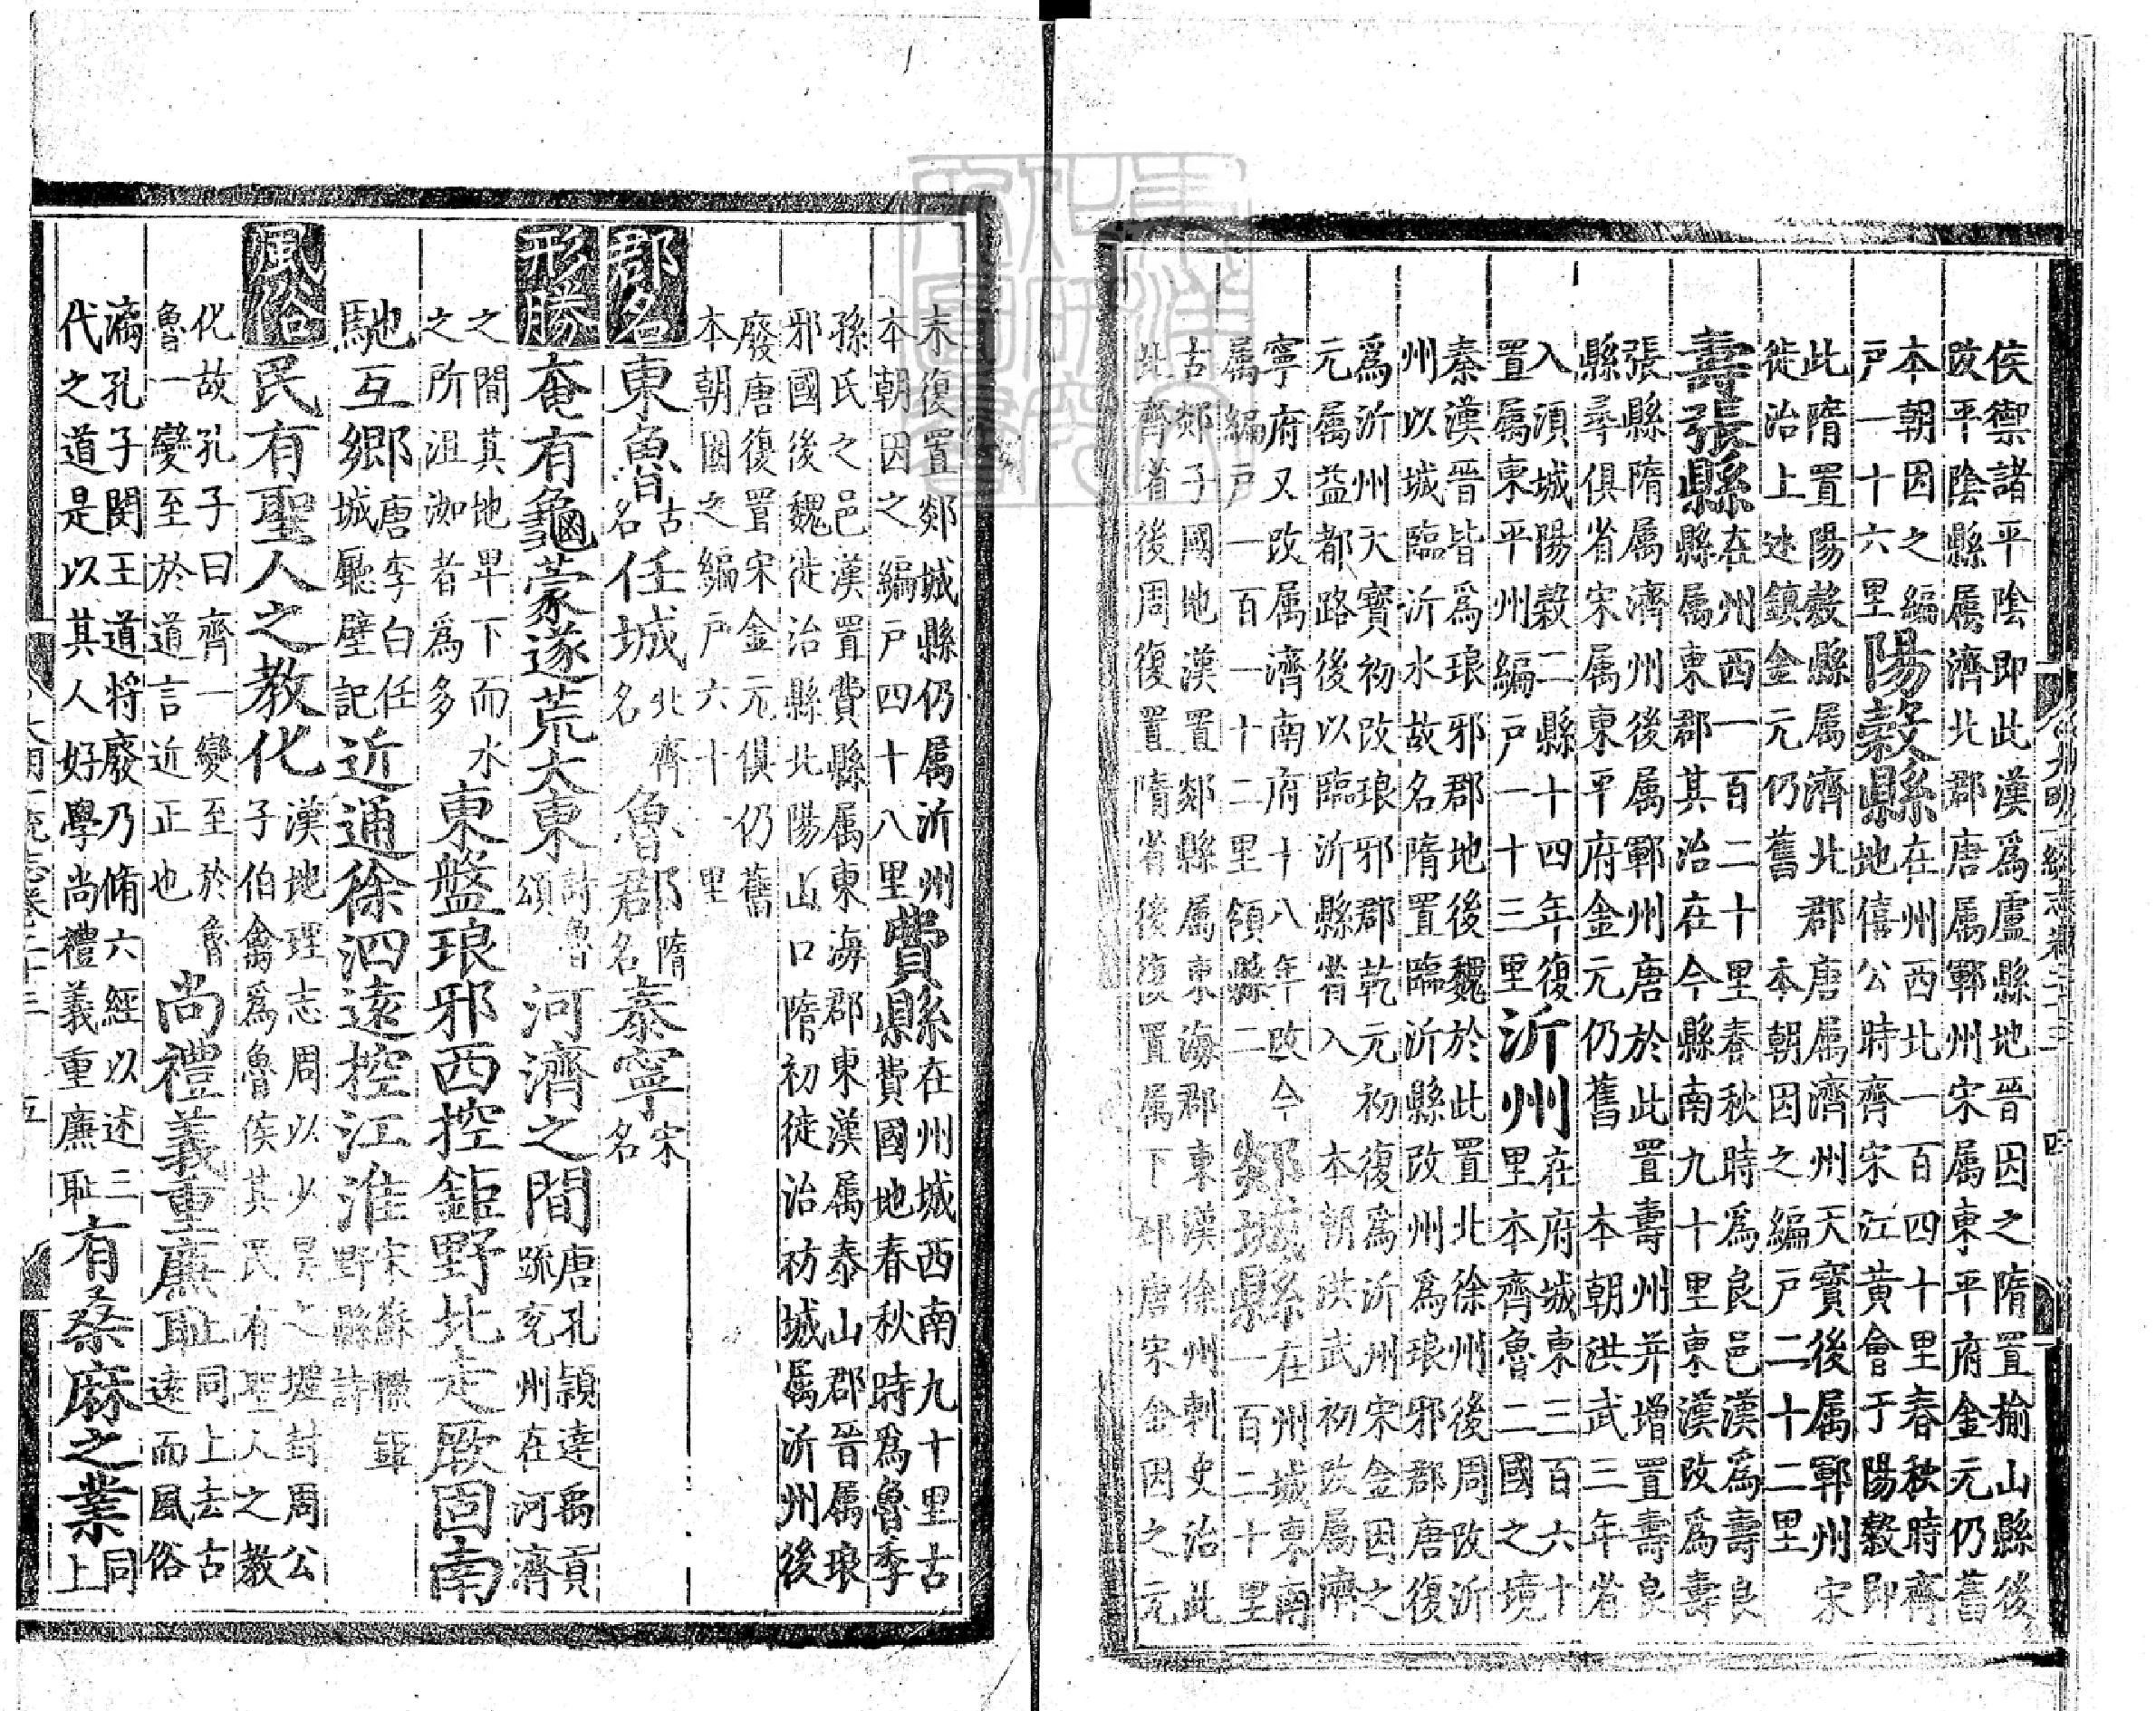 侯禦諸平陰即此漢爲盧縣地晉因之隋置榆山縣後
改平陰縣属濟北郡唐属鄆州宋属東平府金元仍舊
本朝因之編
戸一十六里
陽穀縣
在州西北一百四十里春秋時齊
地僖公時齊宋江黃會于陽穀即
此隋置陽穀縣属濟北郡唐属濟州天寶後属鄆州宋
徙治上巡鎮金元仍舊 本朝因之編戸二十二里
壽張縣
在州西一百二十里春秋時爲良邑漢爲壽良
縣属東郡其治在今縣南九十里東漢改爲壽
張縣隋属濟州後属鄆州唐於此置壽州并增置壽良
縣尋俱省宋属東平府金元仍舊 本朝洪武三年省
入須城陽穀二縣十四年復
置属東平州編戸一十三里
沂州
在府城東三百六十
里本齊魯二國之境
秦漢晉皆爲琅邪郡地後魏於此置北徐州後周改沂
州以城臨沂水故名隋置臨沂縣改州爲琅邪郡唐復
爲沂州天寶初改琅邪郡乾元初復爲沂州宋金因之
元属益都路後以臨沂縣省入 本朝洪武初改属濟
寧府又改属濟南府十八年改今
属編戸一百一十二里領縣二
郯城縣
在州城東南
一百二十里
古郯子國地漢置郯縣属東海郡東漢徐州刺史治此
北齊省後周復置隋省後復置属下邳唐宋金因之元
末復置郯城縣仍属沂州
本朝因之編戸四十八里
費縣
在州城西南九十里古
費國地春秋時爲魯季
孫氏之邑漢置費縣属東海郡東漢属泰山郡晉属琅
邪國後魏徙治縣北陽山口隋初徙治祊城属沂州後
廢唐復置宋金元俱仍舊
本朝因之編戸六十一里
郡名
東魯
古
名
任城
北齊
名
魯郡
隋
名
泰寧
宋
名
形勝
奄有龜蒙遂荒大東
詩魯
頌
河濟之間
唐孔頴達禹貢
疏兖州在河濟
之間其地卑下而水
之所沮洳者爲多
東盤琅邪西控鉅野北走厥固南
馳互鄉
唐李白任
城廳壁記
近通徐泗遠控江淮
宋蘇
野縣詩
風俗
民有聖人之教化
漢地理志周以少昊之墟封周公
子伯禽爲魯侯其民有聖人之教
化故孔子曰齊一變至於魯
魯一變至於道言近正也
尚禮義重廉耻
同上去古
遠而風俗
漓孔子閔王道將廢乃脩六經以述三
代之道是以其人好學尚禮義重廉耻
有桑麻之業
同
上